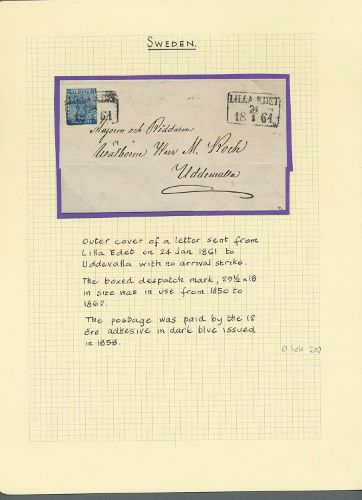 SWEDEN.
LILLA EDET
24
1861
1861
Majoren och Riddaren
Wälborne Herr M. Koch
Uddewalla
Outer cover of a letter sent from
Lilla Edet on 24 Jan 1861 to
Uddevalla with no arrival strike.
The boxed despatch mark, 29½ x 18
in size was in use from 1850 to
1862.
The postage was paid by the 12
öre adhesive in dark blue issued
in 1858.